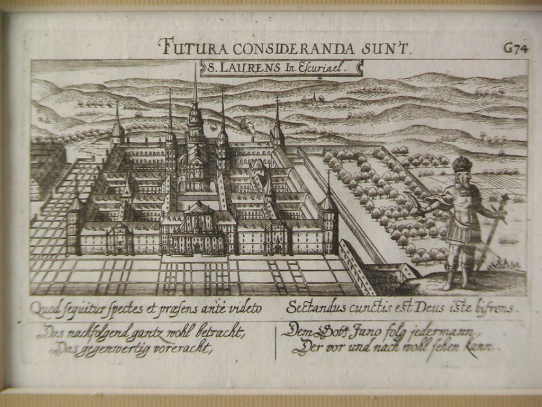 FUTURA CONSIDERANDA SUNT.
G74
S. LAURENS In Escuriael.
Quod sequitur spectes et præsens ante videto
Sectandus cunctis est Deus iste bifrons.
Das nachfolgend gantz wohl betracht,
Das gegenwertig vor
Dem Gott Juno folg jedermann,
Der vor und nach wohl sehen kann.